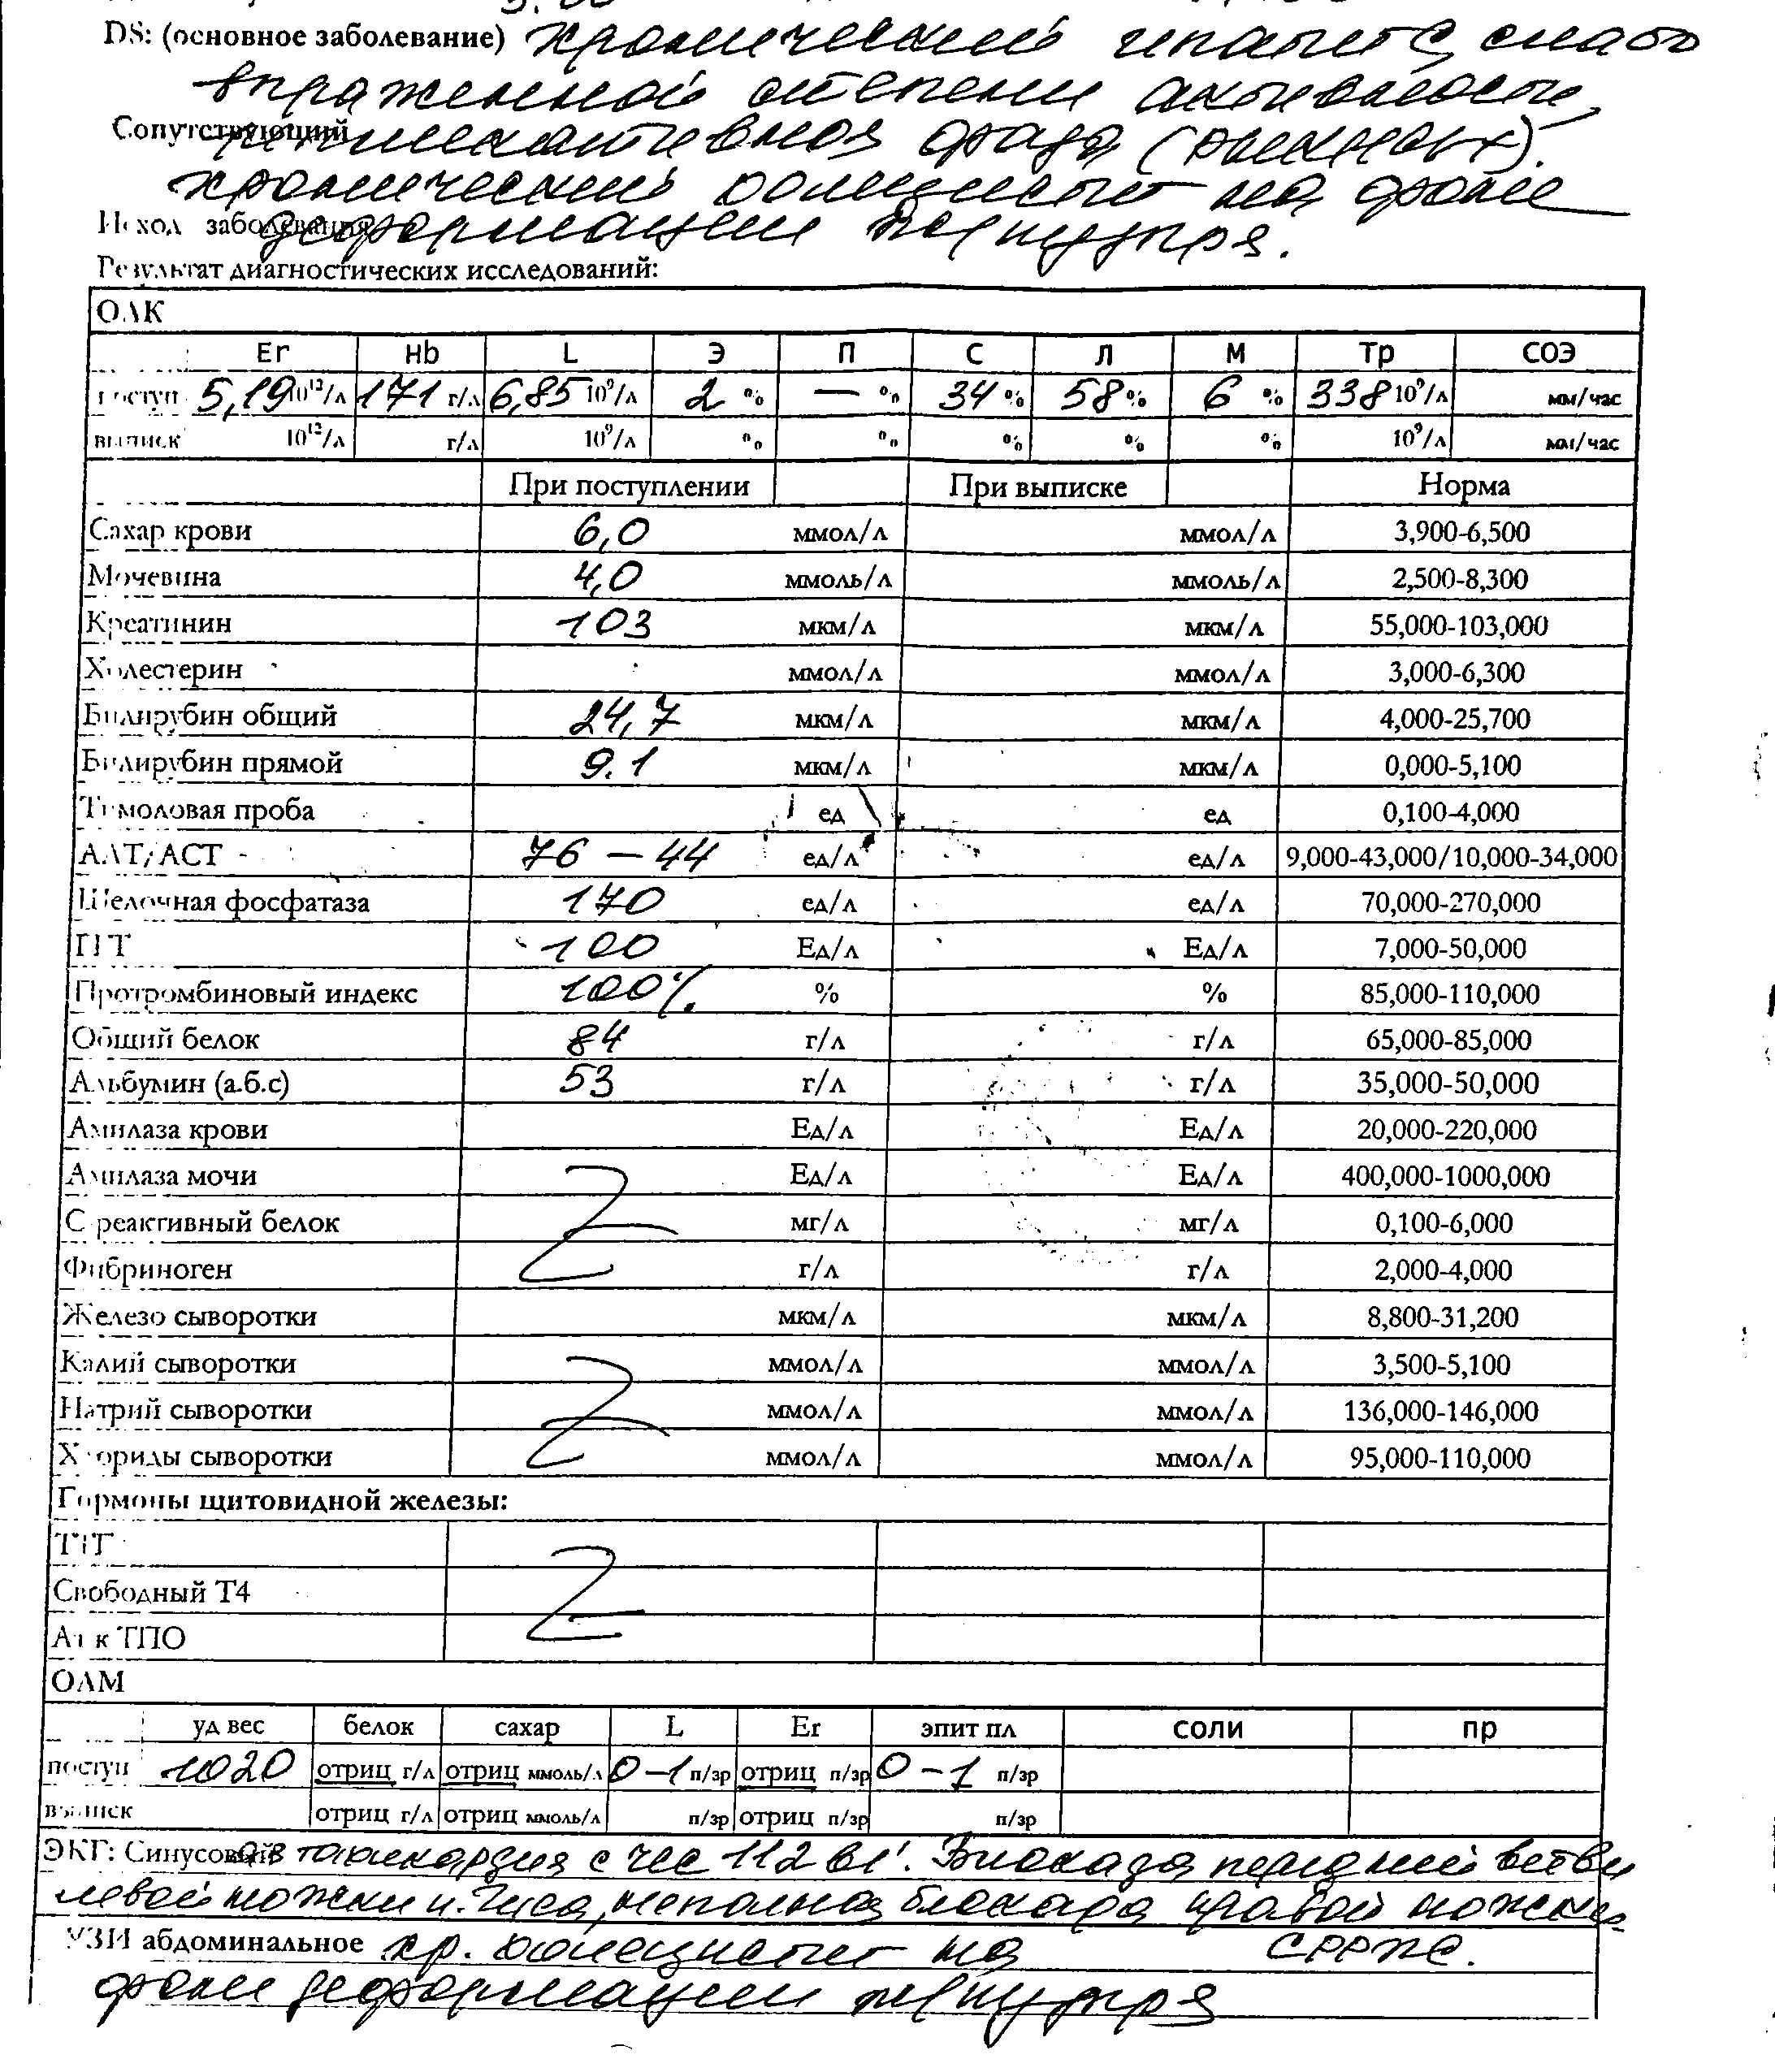 DS: (основное заболевание) хронический гепатит С, слабо
выраженной степени активности,
Сопутствующий
репликативная фаза (РНК HCV+).
хронический холецистит на фоне
Исход заболевания
деформации желч пузыря.
Результат диагностических исследований:
ОАК
Er Hb L Э П С Л М Тр СОЭ
поступ 5,19 10¹²/л 171 г/л 6,85 10⁹/л 2 % — % 34 % 58 % 6 % 338 10⁹/л мм/час
выписк 10¹²/л г/л 10⁹/л % % % % % 10⁹/л мм/час
При поступлении При выписке Норма
Сахар крови 6,0 ммол/л ммол/л 3,900-6,500
Мочевина 4,0 ммоль/л ммоль/л 2,500-8,300
Креатинин 103 мкм/л мкм/л 55,000-103,000
Холестерин ммол/л ммол/л 3,000-6,300
Билирубин общий 24,7 мкм/л мкм/л 4,000-25,700
Билирубин прямой 9.1 мкм/л мкм/л 0,000-5,100
Тимоловая проба ед ед 0,100-4,000
АЛТ/АСТ 76 – 44 ед/л ед/л 9,000-43,000/10,000-34,000
Щелочная фосфатаза 170 ед/л ед/л 70,000-270,000
ГГТ 100 Ед/л Ед/л 7,000-50,000
Протромбиновый индекс 100% % % 85,000-110,000
Общий белок 84 г/л г/л 65,000-85,000
Альбумин (а.б.с) 53 г/л г/л 35,000-50,000
Амилаза крови Ед/л Ед/л 20,000-220,000
Амилаза мочи Ед/л Ед/л 400,000-1000,000
С реактивный белок мг/л мг/л 0,100-6,000
Фибриноген г/л г/л 2,000-4,000
Железо сыворотки мкм/л мкм/л 8,800-31,200
Калий сыворотки ммол/л ммол/л 3,500-5,100
Натрий сыворотки ммол/л ммол/л 136,000-146,000
Хлориды сыворотки ммол/л ммол/л 95,000-110,000
Гормоны щитовидной железы:
ТТГ
Свободный Т4
Ат к ТПО
ОАМ
уд вес белок сахар L Er эпит пл соли пр
поступ 1020 отриц г/л отриц ммоль/л 0–1 п/зр отриц п/зр 0–1 п/зр
выписк отриц г/л отриц ммоль/л п/зр отриц п/зр п/зр
ЭКГ: Синусовая тахикардия с чсс 112 в 1'. Блокада передней ветви
левой ножки п. Гиса, неполная блокада правой ножки.
УЗИ абдоминальное хр. холецистит на СРРЖ.
фоне деформации желч пузыря